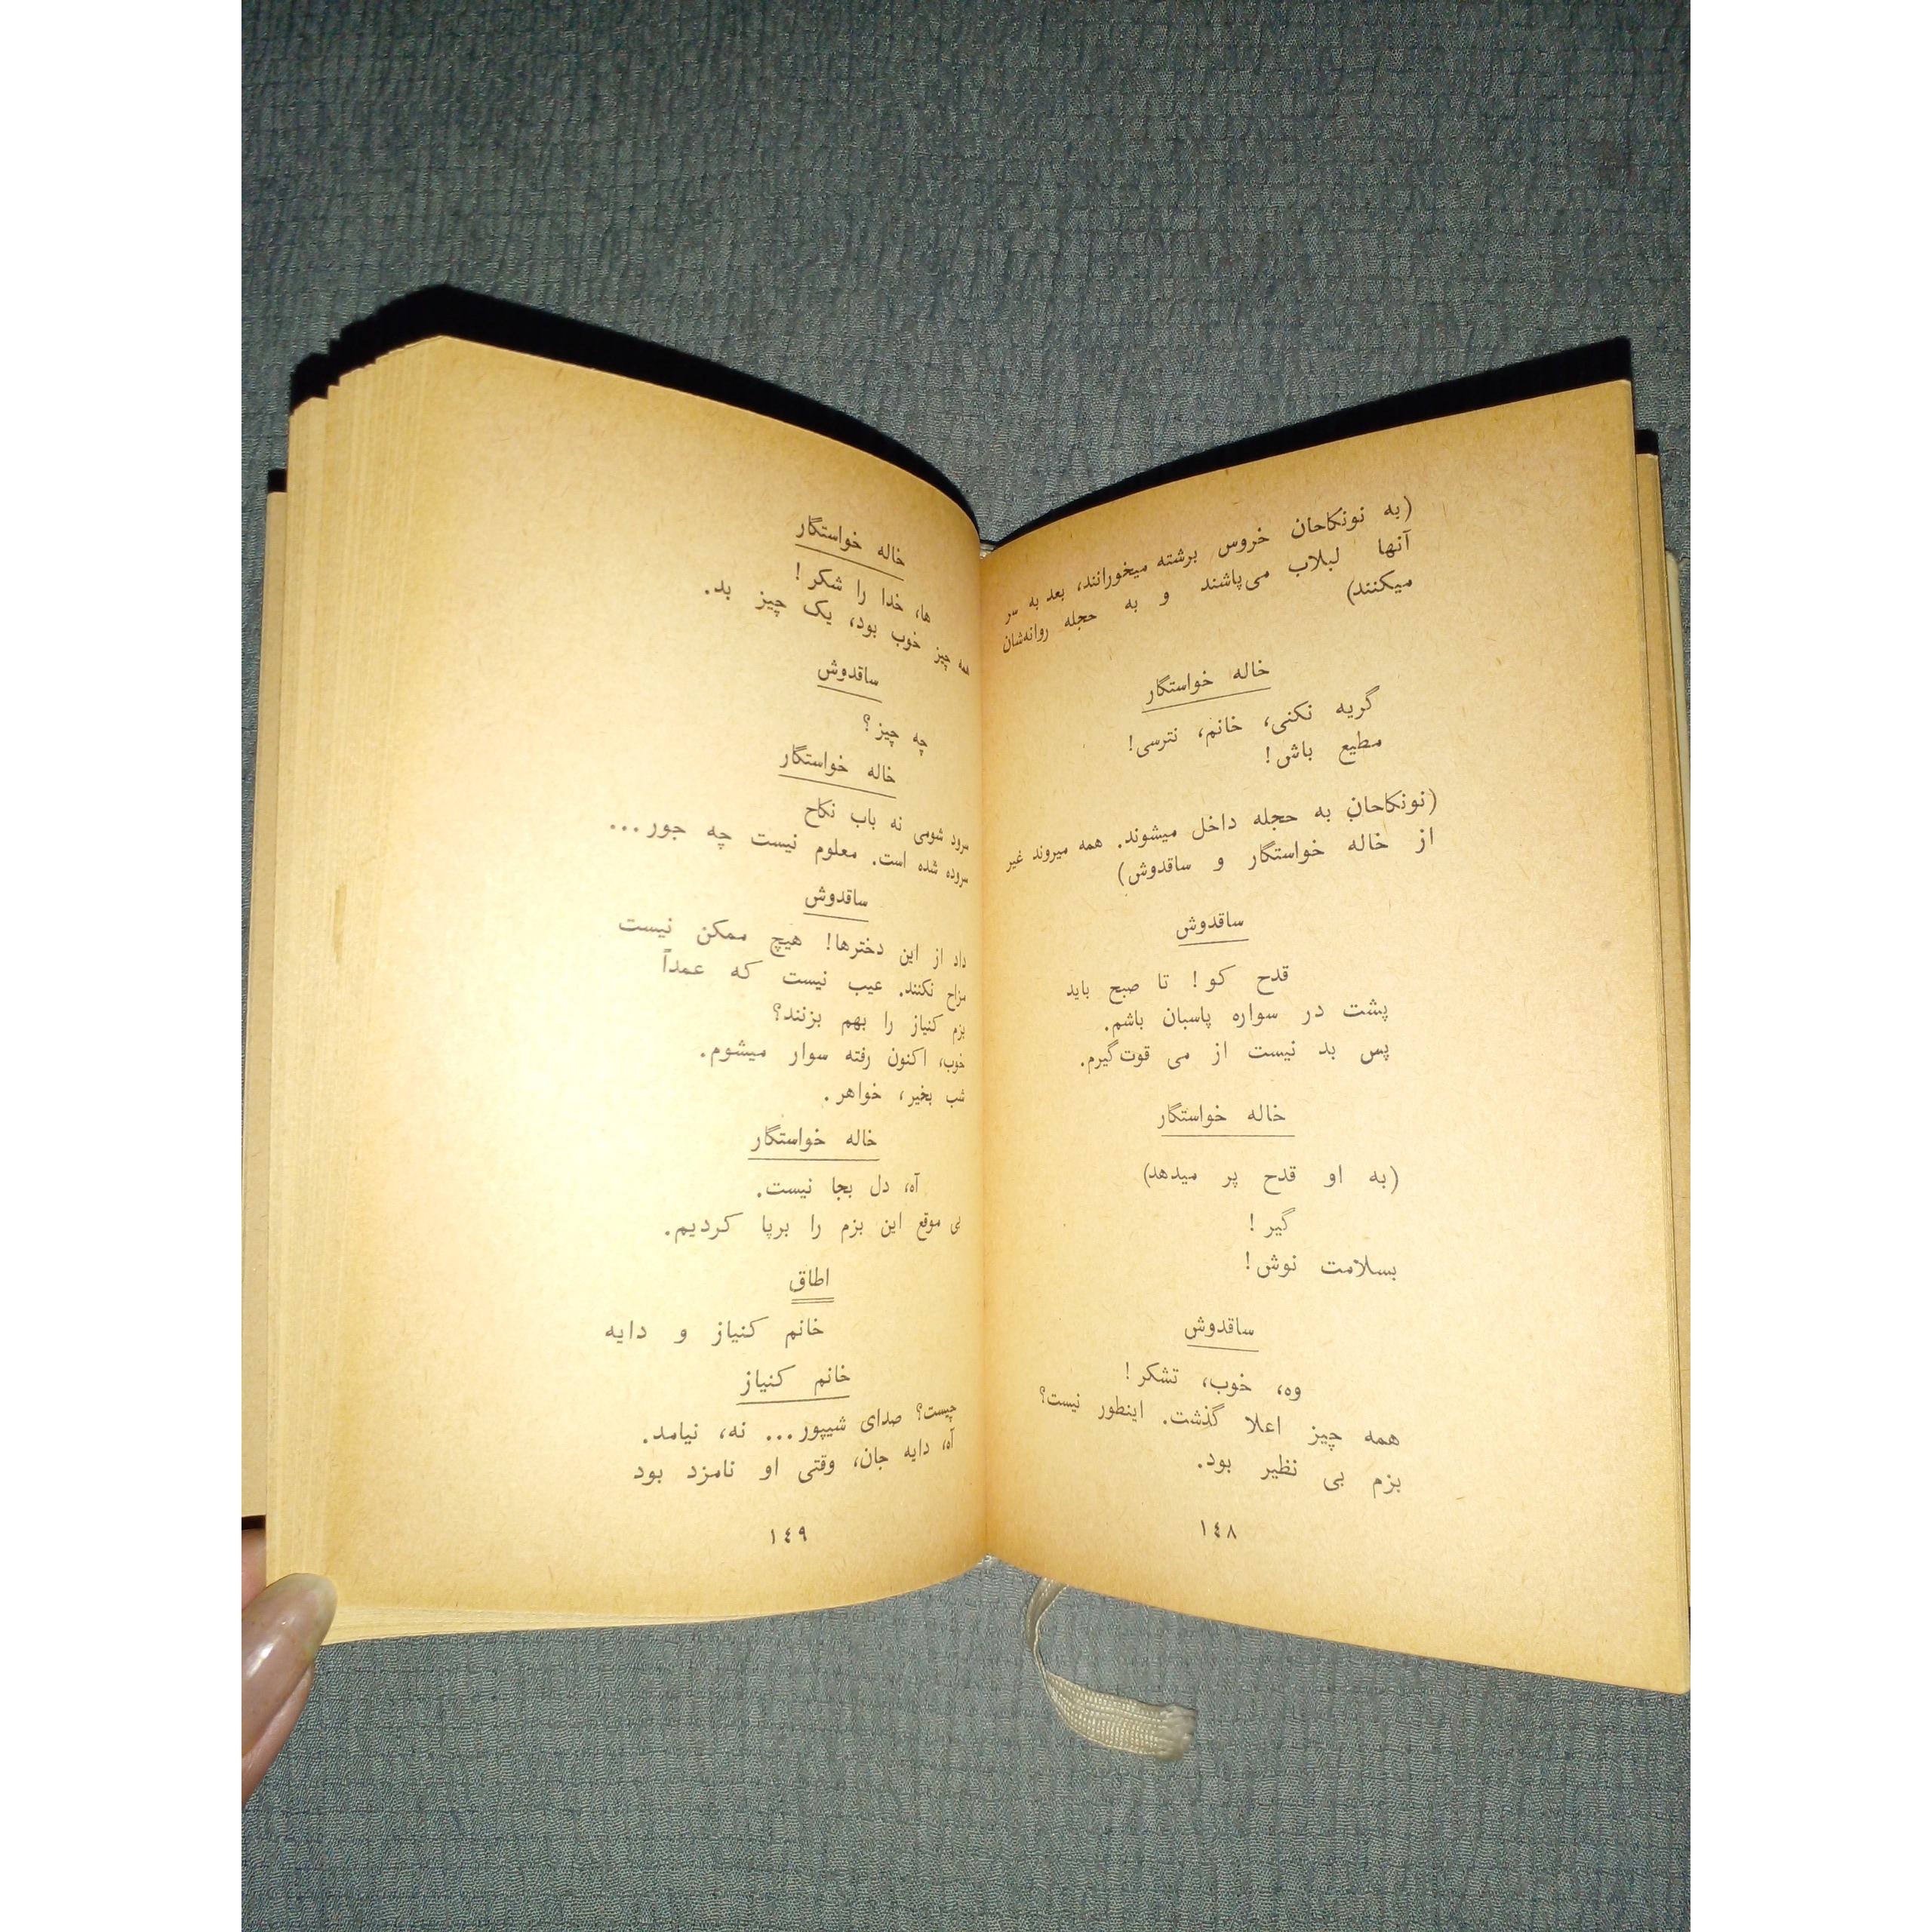 (به نونکاحان خروس برشته میخورانند، بعد به سر
آنها لبلاب می‌پاشند و به حجله روانه‌شان
میکنند)
خاله خواستگار
گریه نکنی، خانم، نترسی!
مطیع باش!
(نونکاحان به حجله داخل میشوند. همه میروند غیر
از خاله خواستگار و ساقدوش)
ساقدوش
قدح کو! تا صبح باید
پشت در سواره پاسبان باشم.
پس بد نیست از می قوت‌گیرم.
خاله خواستگار
(به او قدح پر میدهد)
گیر!
بسلامت نوش!
ساقدوش
وه، خوب، تشکر!
همه چیز اعلا گذشت. اینطور نیست؟
بزم بی نظیر بود.
١٤٨
خاله خواستگار
ها، خدا را شکر!
همه چیز خوب بود، یک چیز بد.
ساقدوش
چه چیز؟
خاله خواستگار
سرود شومی نه باب نکاح
سروده شده است. معلوم نیست چه جور...
ساقدوش
داد از این دخترها! هیچ ممکن نیست
مزاح نکنند. عیب نیست که عمداً
بزم کنیاز را بهم بزنند؟
خوب، اکنون رفته سوار میشوم.
شب بخیر، خواهر.
خاله خواستگار
آه، دل بجا نیست.
بی موقع این بزم را برپا کردیم.
اطاق
خانم کنیاز و دایه
خانم کنیاز
چیست؟ صدای شیپور... نه، نیامد.
آه، دایه جان، وقتی او نامزد بود
١٤٩